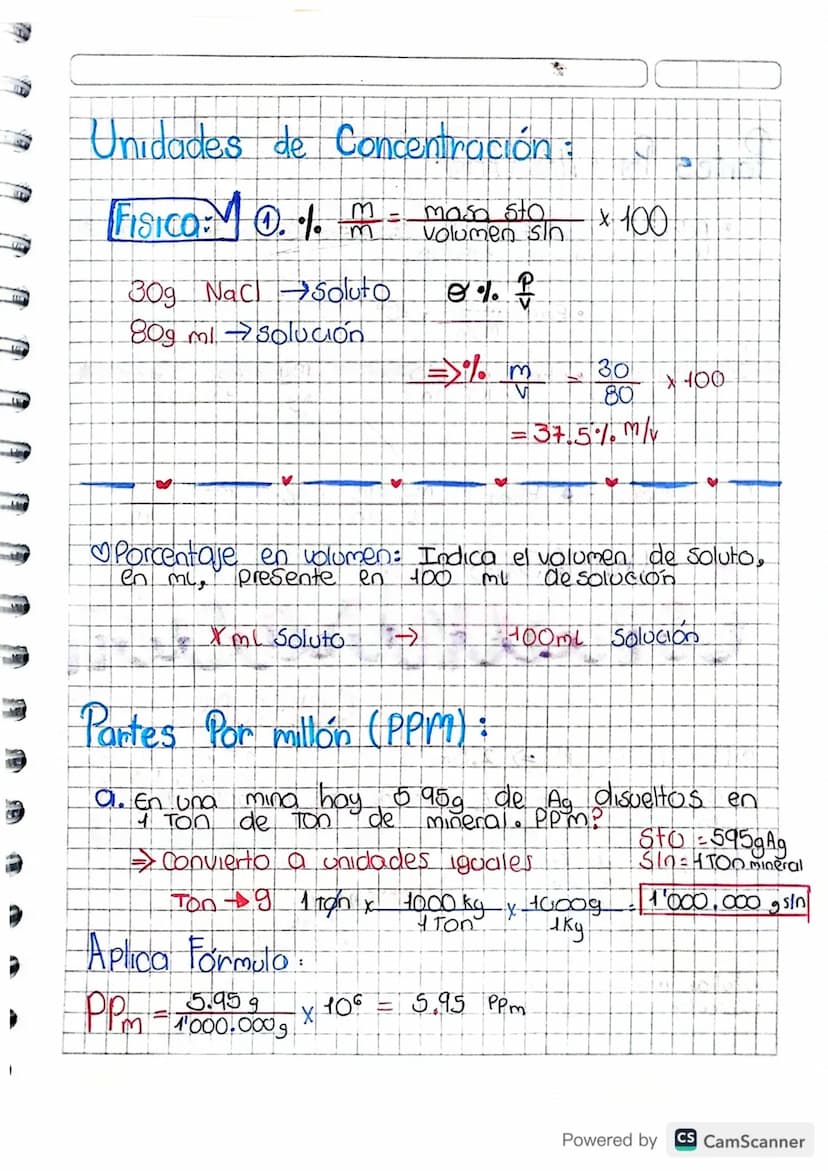 Unidades de Concentración:
FISICO: ①. % m/m = masa sto / volumen sln x 100
30g NaCl → soluto ø % P/V
80g ml → solución
⇒ % m/v = 30/80 x 100
= 37.5% m/v
♡ Porcentaje en volumen: Indica el volumen de soluto,
en ml, presente en 100 ml de solución
X ml soluto → 100ml solución
Partes Por millón (PPM):
a. En una mina hay 5 95g de Ag disueltos en
1 Ton de Ton de mineral. PPm?
Sto = 595g Ag
⇒ Convierto a unidades iguales
Sln = 1 Ton mineral
Ton → g 1 Ton x 1000 kg / 1 Ton x 1000g / 1Kg = 1'000.000 g sln
Aplica Fórmula:
PPm = 5.95 g / 1'000.000g x 10⁶ = 5,95 PPm
Powered by CS CamScanner